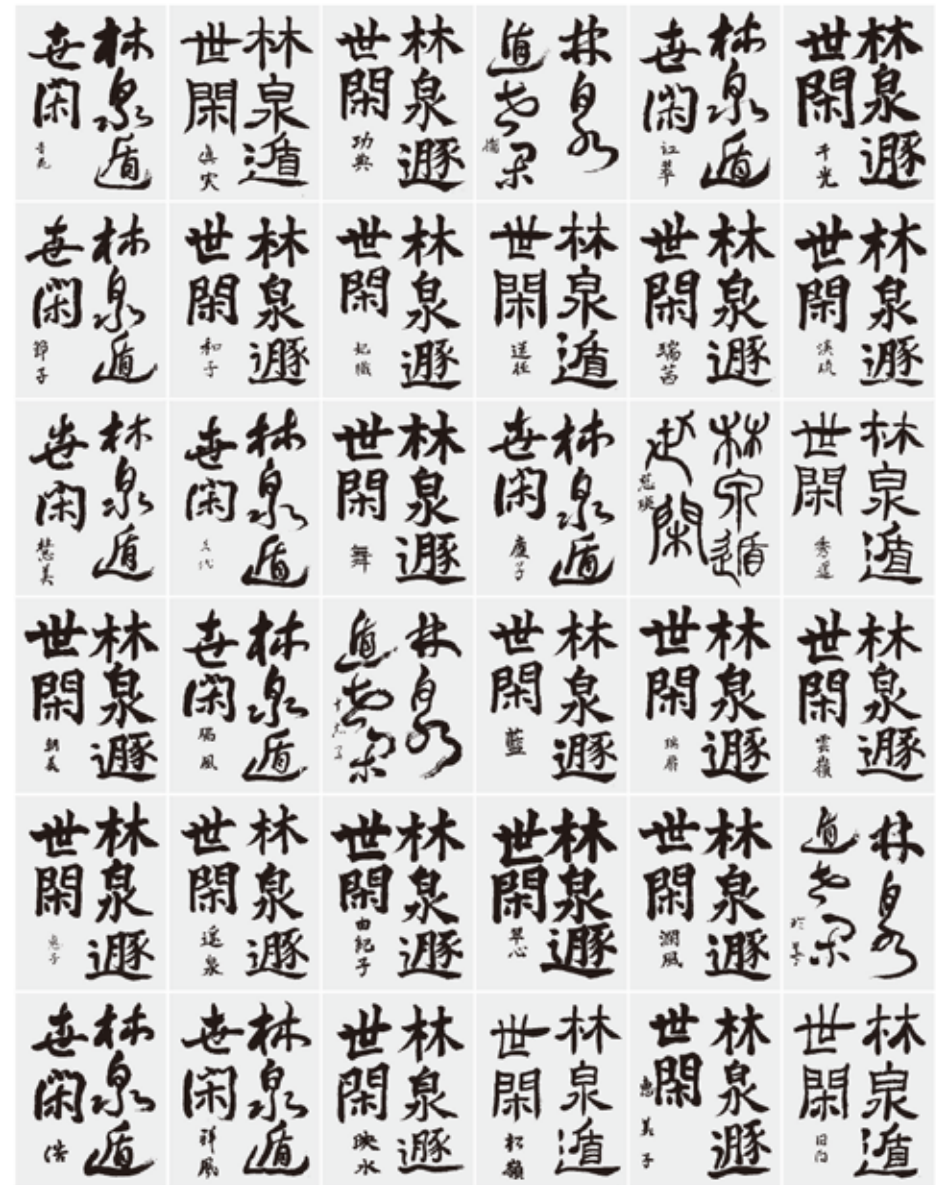 林泉遁
世閑
林泉遁
世閑
林泉遯
世閑
功典
林泉
遁世閑
林泉遁
世閑
林泉遯
世閑
千光
林泉遁
世閑
節子
林泉遯
世閑
和子
林泉遯
世閑
妃織
林泉遁
世閑
林泉遯
世閑
瑞茜
林泉遯
世閑
林泉遁
世閑
慧美
林泉遁
世閑
林泉遯
世閑
舞
林泉遁
世閑
慶子
林泉遁
世閑
慈瑛
林泉遁
世閑
林泉遯
世閑
朝美
林泉遁
世閑
林泉
遁世閑
林泉遯
世閑
藍
林泉遯
世閑
林泉遯
世閑
雲嶺
林泉遯
世閑
恵子
林泉遯
世閑
遥泉
林泉遯
世閑
由紀子
林泉遯
世閑
翠心
林泉遯
世閑
潤風
林泉
遁世閑
林泉遁
世閑
浩
林泉遁
世閑
祥風
林泉遯
世閑
映水
林泉遁
世閑
松嶺
林泉遯
世閑
恵美子
林泉遁
世閑
日向